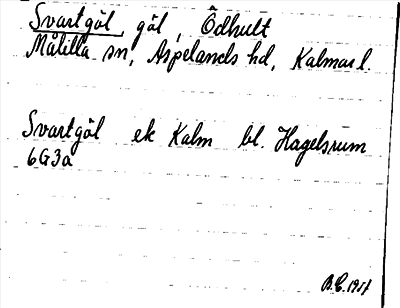 Svartgöl, göl, Ödhult
Målilla sn, Aspelands hd, Kalmar l.
Svartgöl ek Kalm bl. Hagelsrum
6G3a